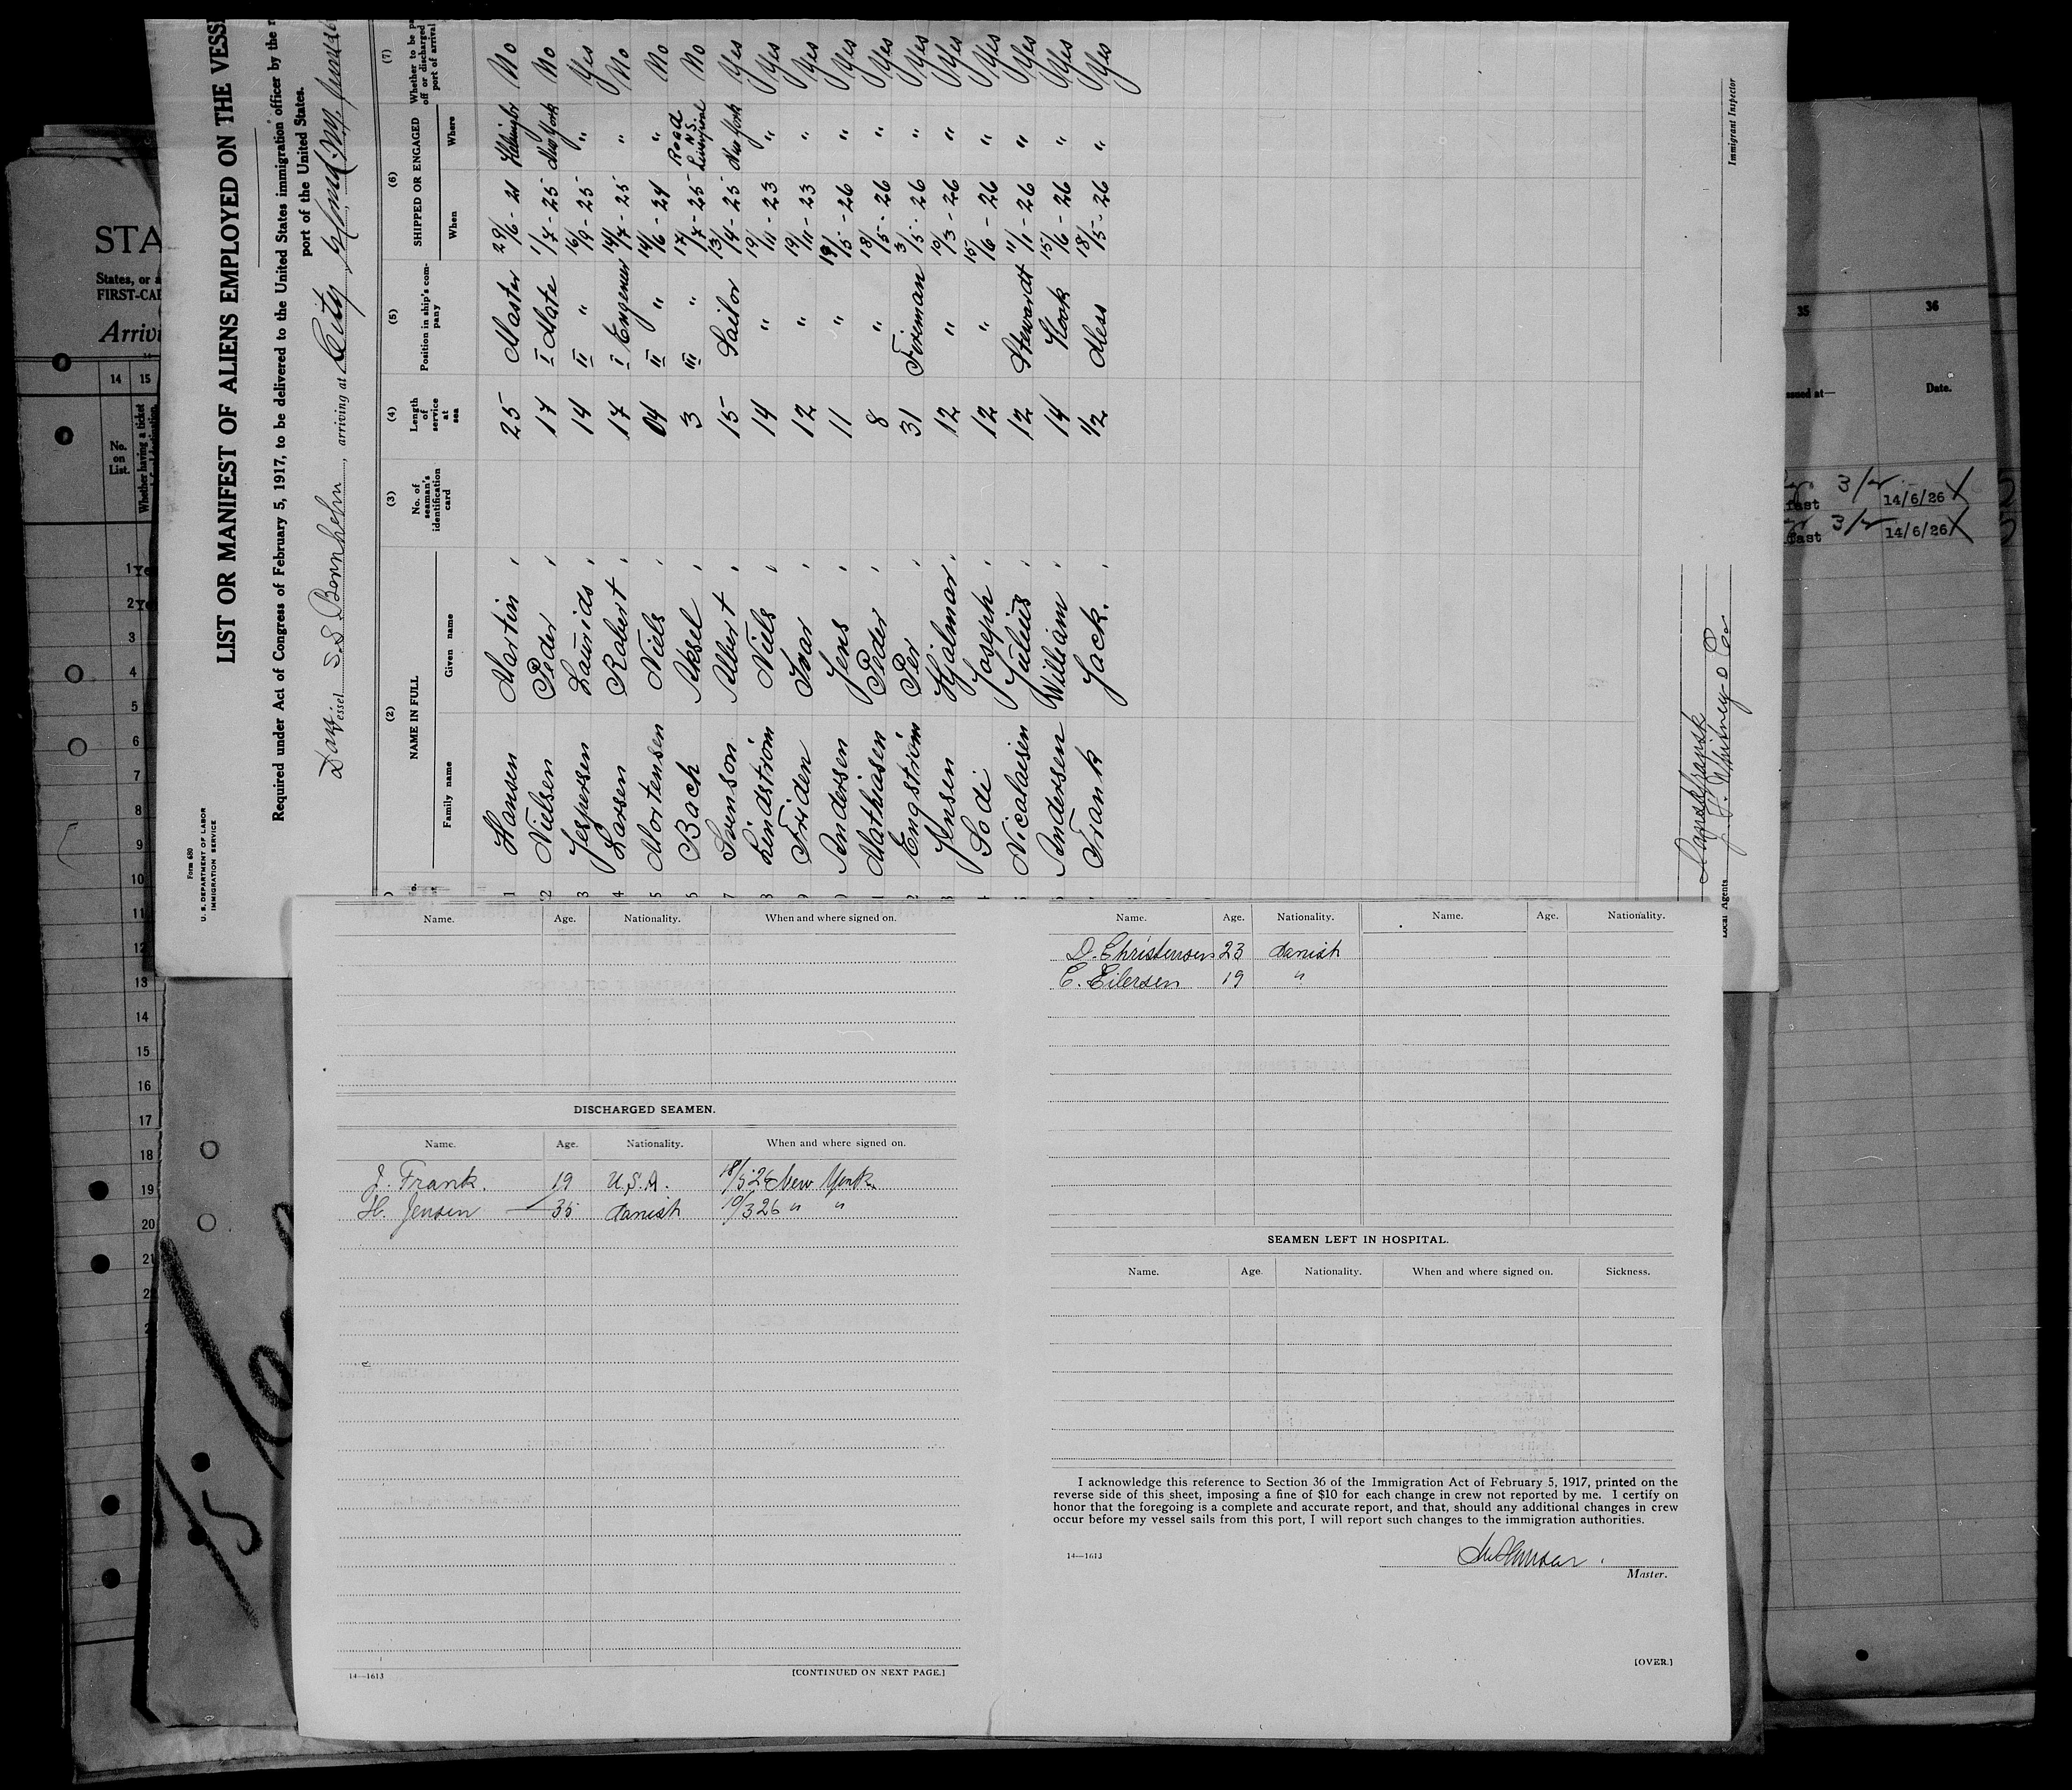 Form 680
U. S. DEPARTMENT OF LABOR
IMMIGRATION SERVICE
LIST OR MANIFEST OF ALIENS EMPLOYED ON THE VESS
Required under Act of Congress of February 5, 1917, to be delivered to the United States immigration officer by the r
port of the United States.
Vessel S.S. Bornholm, arriving at
(2) (3) (4) (5) (6) (7)
NAME IN FULL
Family name Given name
No. of seaman's identification card
Length of service at sea
Position in ship's company
SHIPPED OR ENGAGED
When Where
Whether to be pa
off or discharged
port of arrival
1 Hansen Martin 25 Master 29/6-21 No
2 Nielsen Peder 17 I Mate 1/7-25 New York No
3 Jespersen Laurids 14 II " 16/9-25 " Yes
4 Larsen Robert 17 I Engeneer 14/7-25 " No
5 Mortensen Niels 04 II " 14/6-24 " No
6 Bach Aksel 3 III " 17/7-25 No
7 Svenson Albert 15 Sailor 13/4-25 New York Yes
8 Lindström Niels 14 " 19/11-23 " Yes
9 Friden Ivar 12 " 19/11-23 " Yes
0 Andersen Jens 11 " 18/5-26 " Yes
1 Mathiasen Peder 8 " 18/5-26 " Yes
2 Engström Per 31 Fireman 3/5-26 " Yes
3 Jensen Hjalmar 12 " 10/3-26 " Yes
4 Sodi Joseph 12 " 15/6-26 " Yes
Nicolaisen Julius 12 Stewardt 11/1-26 " Yes
Andersen William 14 Kook 15/6-26 " Yes
Frank Jack. 1/2 Mess 18/5-26 " Yes
Local Agents
Immigrant Inspector
STA
States, or a
FIRST-CAB
Arrivi
14 15
No. on List.
Whether having a ticket
1 Ye
2 Ye
3
4
5
6
7
8
9
10
11
12
13
14
15
16
17
18
19
20
21
2
2
35 36
ssued at—
Date.
fast 14/6/26
fast 14/6/26
Name. Age. Nationality. When and where signed on.
DISCHARGED SEAMEN.
Name. Age. Nationality. When and where signed on.
J. Frank. 19 U.S.A. 18/5 26 New York
H. Jensen 35 danish 10/3 26 " "
14—1613
[CONTINUED ON NEXT PAGE.]
Name. Age. Nationality. Name. Age. Nationality.
D. Christensen 23 danish
E. Eilersen 19 "
SEAMEN LEFT IN HOSPITAL.
Name. Age. Nationality. When and where signed on. Sickness.
I acknowledge this reference to Section 36 of the Immigration Act of February 5, 1917, printed on the
reverse side of this sheet, imposing a fine of $10 for each change in crew not reported by me. I certify on
honor that the foregoing is a complete and accurate report, and that, should any additional changes in crew
occur before my vessel sails from this port, I will report such changes to the immigration authorities.
14—1613
Master.
[OVER.]